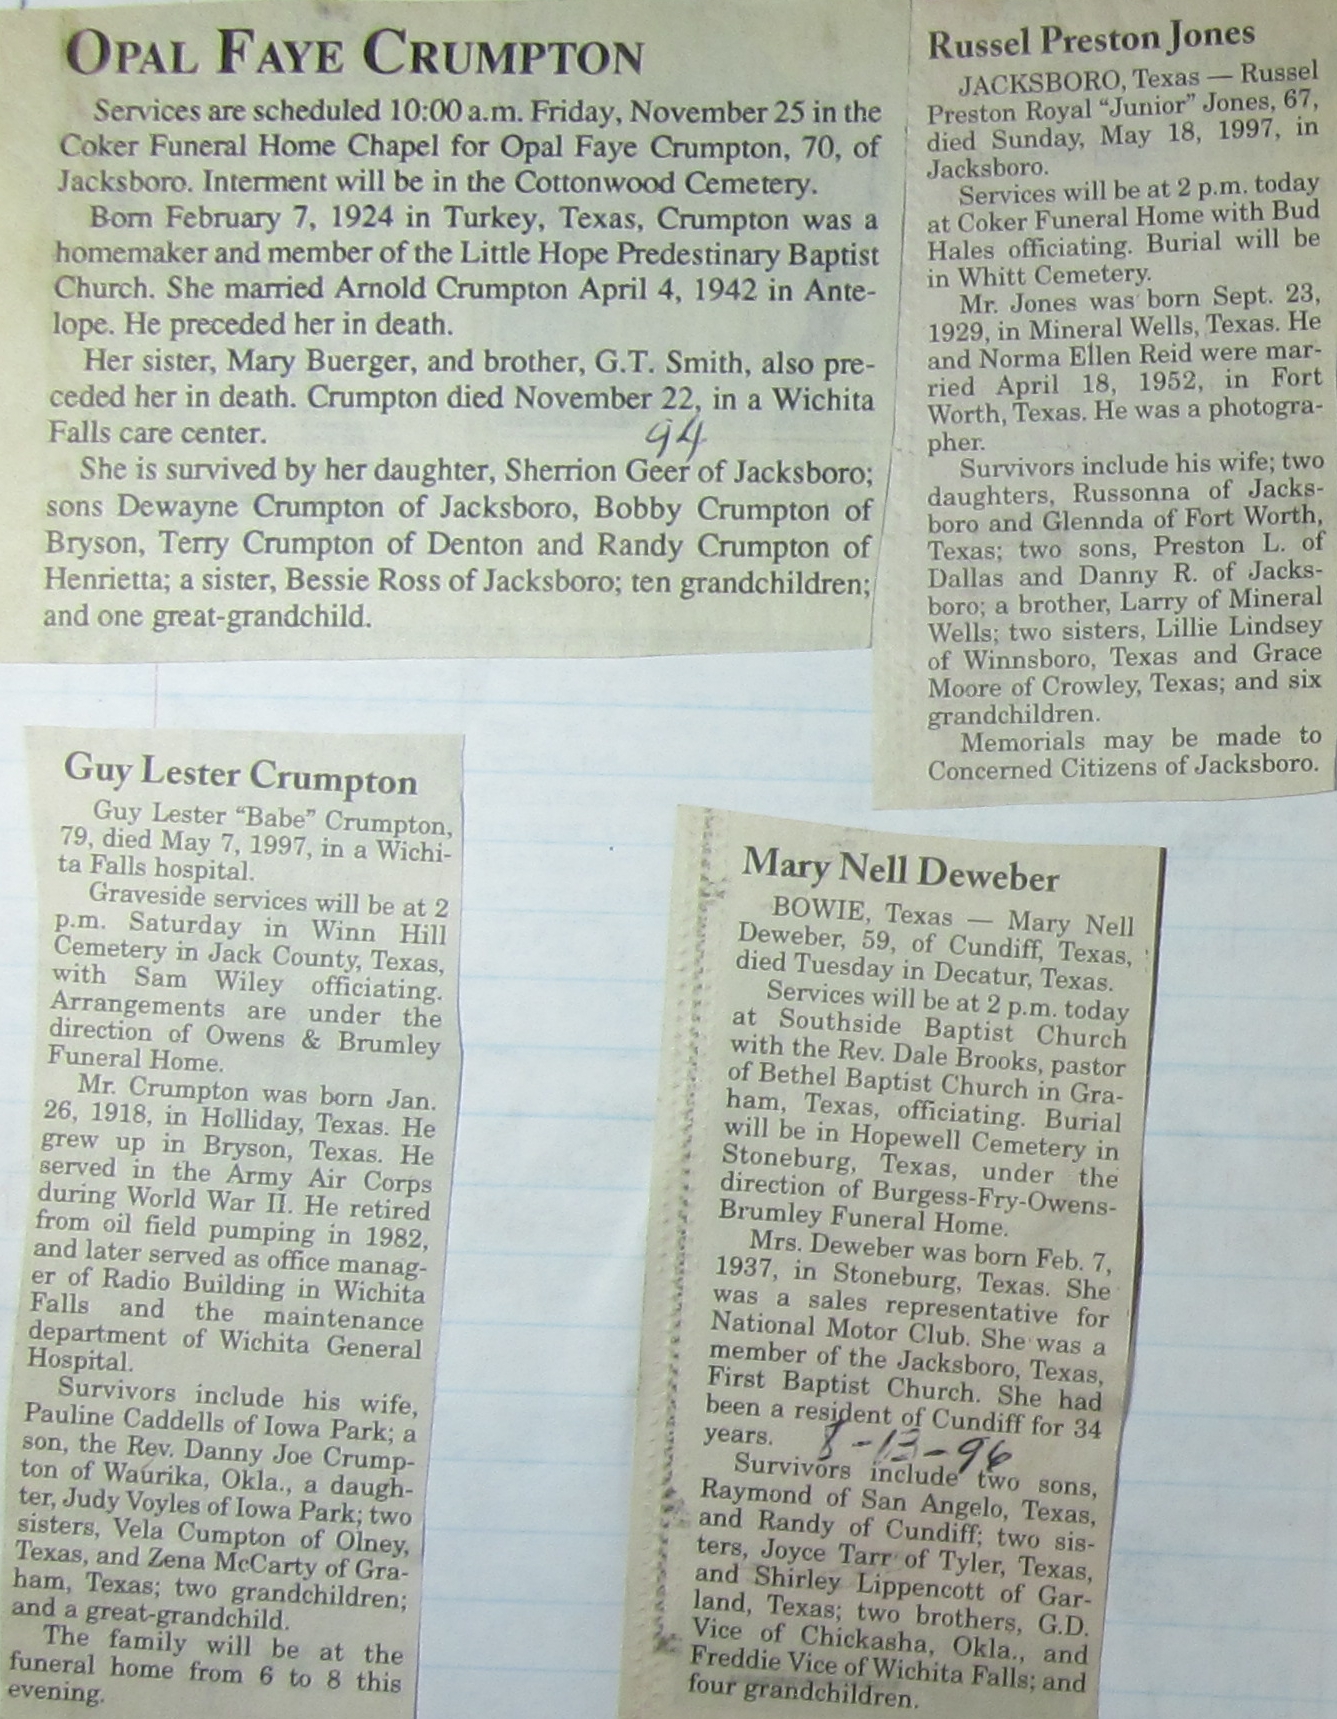 OPAL FAYE CRUMPTON
Services are scheduled 10:00 a.m. Friday, November 25 in the
Coker Funeral Home Chapel for Opal Faye Crumpton, 70, of
Jacksboro. Interment will be in the Cottonwood Cemetery.
Born February 7, 1924 in Turkey, Texas, Crumpton was a
homemaker and member of the Little Hope Predestinary Baptist
Church. She married Arnold Crumpton April 4, 1942 in Ante-
lope. He preceded her in death.
Her sister, Mary Buerger, and brother, G.T. Smith, also pre-
ceded her in death. Crumpton died November 22, in a Wichita
Falls care center.
94
She is survived by her daughter, Sherrion Geer of Jacksboro;
sons Dewayne Crumpton of Jacksboro, Bobby Crumpton of
Bryson, Terry Crumpton of Denton and Randy Crumpton of
Henrietta; a sister, Bessie Ross of Jacksboro; ten grandchildren;
and one great-grandchild.
Russel Preston Jones
JACKSBORO, Texas — Russel
Preston Royal “Junior” Jones, 67,
died Sunday, May 18, 1997, in
Jacksboro.
Services will be at 2 p.m. today
at Coker Funeral Home with Bud
Hales officiating. Burial will be
in Whitt Cemetery.
Mr. Jones was born Sept. 23,
1929, in Mineral Wells, Texas. He
and Norma Ellen Reid were mar-
ried April 18, 1952, in Fort
Worth, Texas. He was a photogra-
pher.
Survivors include his wife; two
daughters, Russonna of Jacks-
boro and Glennda of Fort Worth,
Texas; two sons, Preston L. of
Dallas and Danny R. of Jacks-
boro; a brother, Larry of Mineral
Wells; two sisters, Lillie Lindsey
of Winnsboro, Texas and Grace
Moore of Crowley, Texas; and six
grandchildren.
Memorials may be made to
Concerned Citizens of Jacksboro.
Guy Lester Crumpton
Guy Lester “Babe” Crumpton,
79, died May 7, 1997, in a Wichi-
ta Falls hospital.
Graveside services will be at 2
p.m. Saturday in Winn Hill
Cemetery in Jack County, Texas,
with Sam Wiley officiating.
Arrangements are under the
direction of Owens & Brumley
Funeral Home.
Mr. Crumpton was born Jan.
26, 1918, in Holliday, Texas. He
grew up in Bryson, Texas. He
served in the Army Air Corps
during World War II. He retired
from oil field pumping in 1982,
and later served as office manag-
er of Radio Building in Wichita
Falls and the maintenance
department of Wichita General
Hospital.
Survivors include his wife,
Pauline Caddells of Iowa Park; a
son, the Rev. Danny Joe Crump-
ton of Waurika, Okla., a daugh-
ter, Judy Voyles of Iowa Park; two
sisters, Vela Cumpton of Olney,
Texas, and Zena McCarty of Gra-
ham, Texas; two grandchildren;
and a great-grandchild.
The family will be at the
funeral home from 6 to 8 this
evening.
Mary Nell Deweber
BOWIE, Texas — Mary Nell
Deweber, 59, of Cundiff, Texas,
died Tuesday in Decatur, Texas.
Services will be at 2 p.m. today
at Southside Baptist Church
with the Rev. Dale Brooks, pastor
of Bethel Baptist Church in Gra-
ham, Texas, officiating. Burial
will be in Hopewell Cemetery in
Stoneburg, Texas, under the
direction of Burgess-Fry-Owens-
Brumley Funeral Home.
Mrs. Deweber was born Feb. 7,
1937, in Stoneburg, Texas. She
was a sales representative for
National Motor Club. She was a
member of the Jacksboro, Texas,
First Baptist Church. She had
been a resident of Cundiff for 34
years.
8-13-96
Survivors include two sons,
Raymond of San Angelo, Texas,
and Randy of Cundiff; two sis-
ters, Joyce Tarr of Tyler, Texas,
and Shirley Lippencott of Gar-
land, Texas; two brothers, G.D.
Vice of Chickasha, Okla., and
Freddie Vice of Wichita Falls; and
four grandchildren.